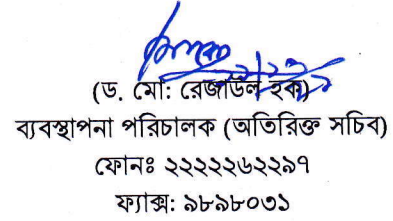 (ড. মো: রেজাউল হক)
ব্যবস্থাপনা পরিচালক (অতিরিক্ত সচিব)
ফোনঃ ২২২২৬২২৯৭
ফ্যাক্স: ৯৮৯৮০৩১